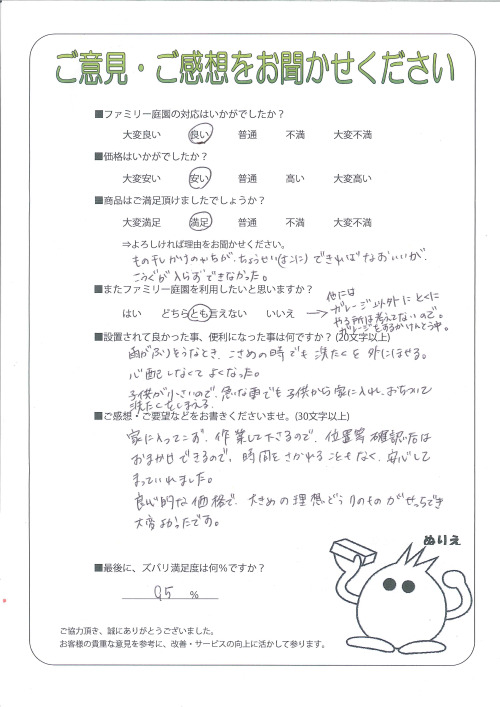 ご意見・ご感想をお聞かせください
■ファミリー庭園の対応はいかがでしたか？
大変良い 良い 普通 不満 大変不満
■価格はいかがでしたか？
大変安い 安い 普通 高い 大変高い
■商品はご満足頂けましたでしょうか？
大変満足 満足 普通 不満 大変不満
⇒よろしければ理由をお聞かせください。
もの干しかけのいちが、ちょうせい できればなおいいが、
こうぐが入らずできなかった。
■またファミリー庭園を利用したいと思いますか？
はい どちらとも言えない いいえ
他には
ガレージ以外にとくに
やる所は考えてないので。
ガレージをするか けんとう中。
■設置されて良かった事、便利になった事は何ですか？(20文字以上)
雨がふりそうなとき、こさめの時でも洗たくを外にほせる。
心配しなくてよくなった。
子供が小さいので、急な雨でも子供から家に入れ、おちついて
洗たくをしまえる。
■ご感想・ご要望などをお書きくださいませ。(30文字以上)
家に入ってこず、作業して下さるので、位置等確認後は
おまかせできるので、時間をさかれることもなく、安心して
まっていれました。
良心的な価格で、大きめの理想どうりのものがせっちでき
大変よかったです。
ぬりえ
■最後に、ズバリ満足度は何%ですか？
95 %
ご協力頂き、誠にありがとうございました。
お客様の貴重な意見を参考に、改善・サービスの向上に活かして参ります。